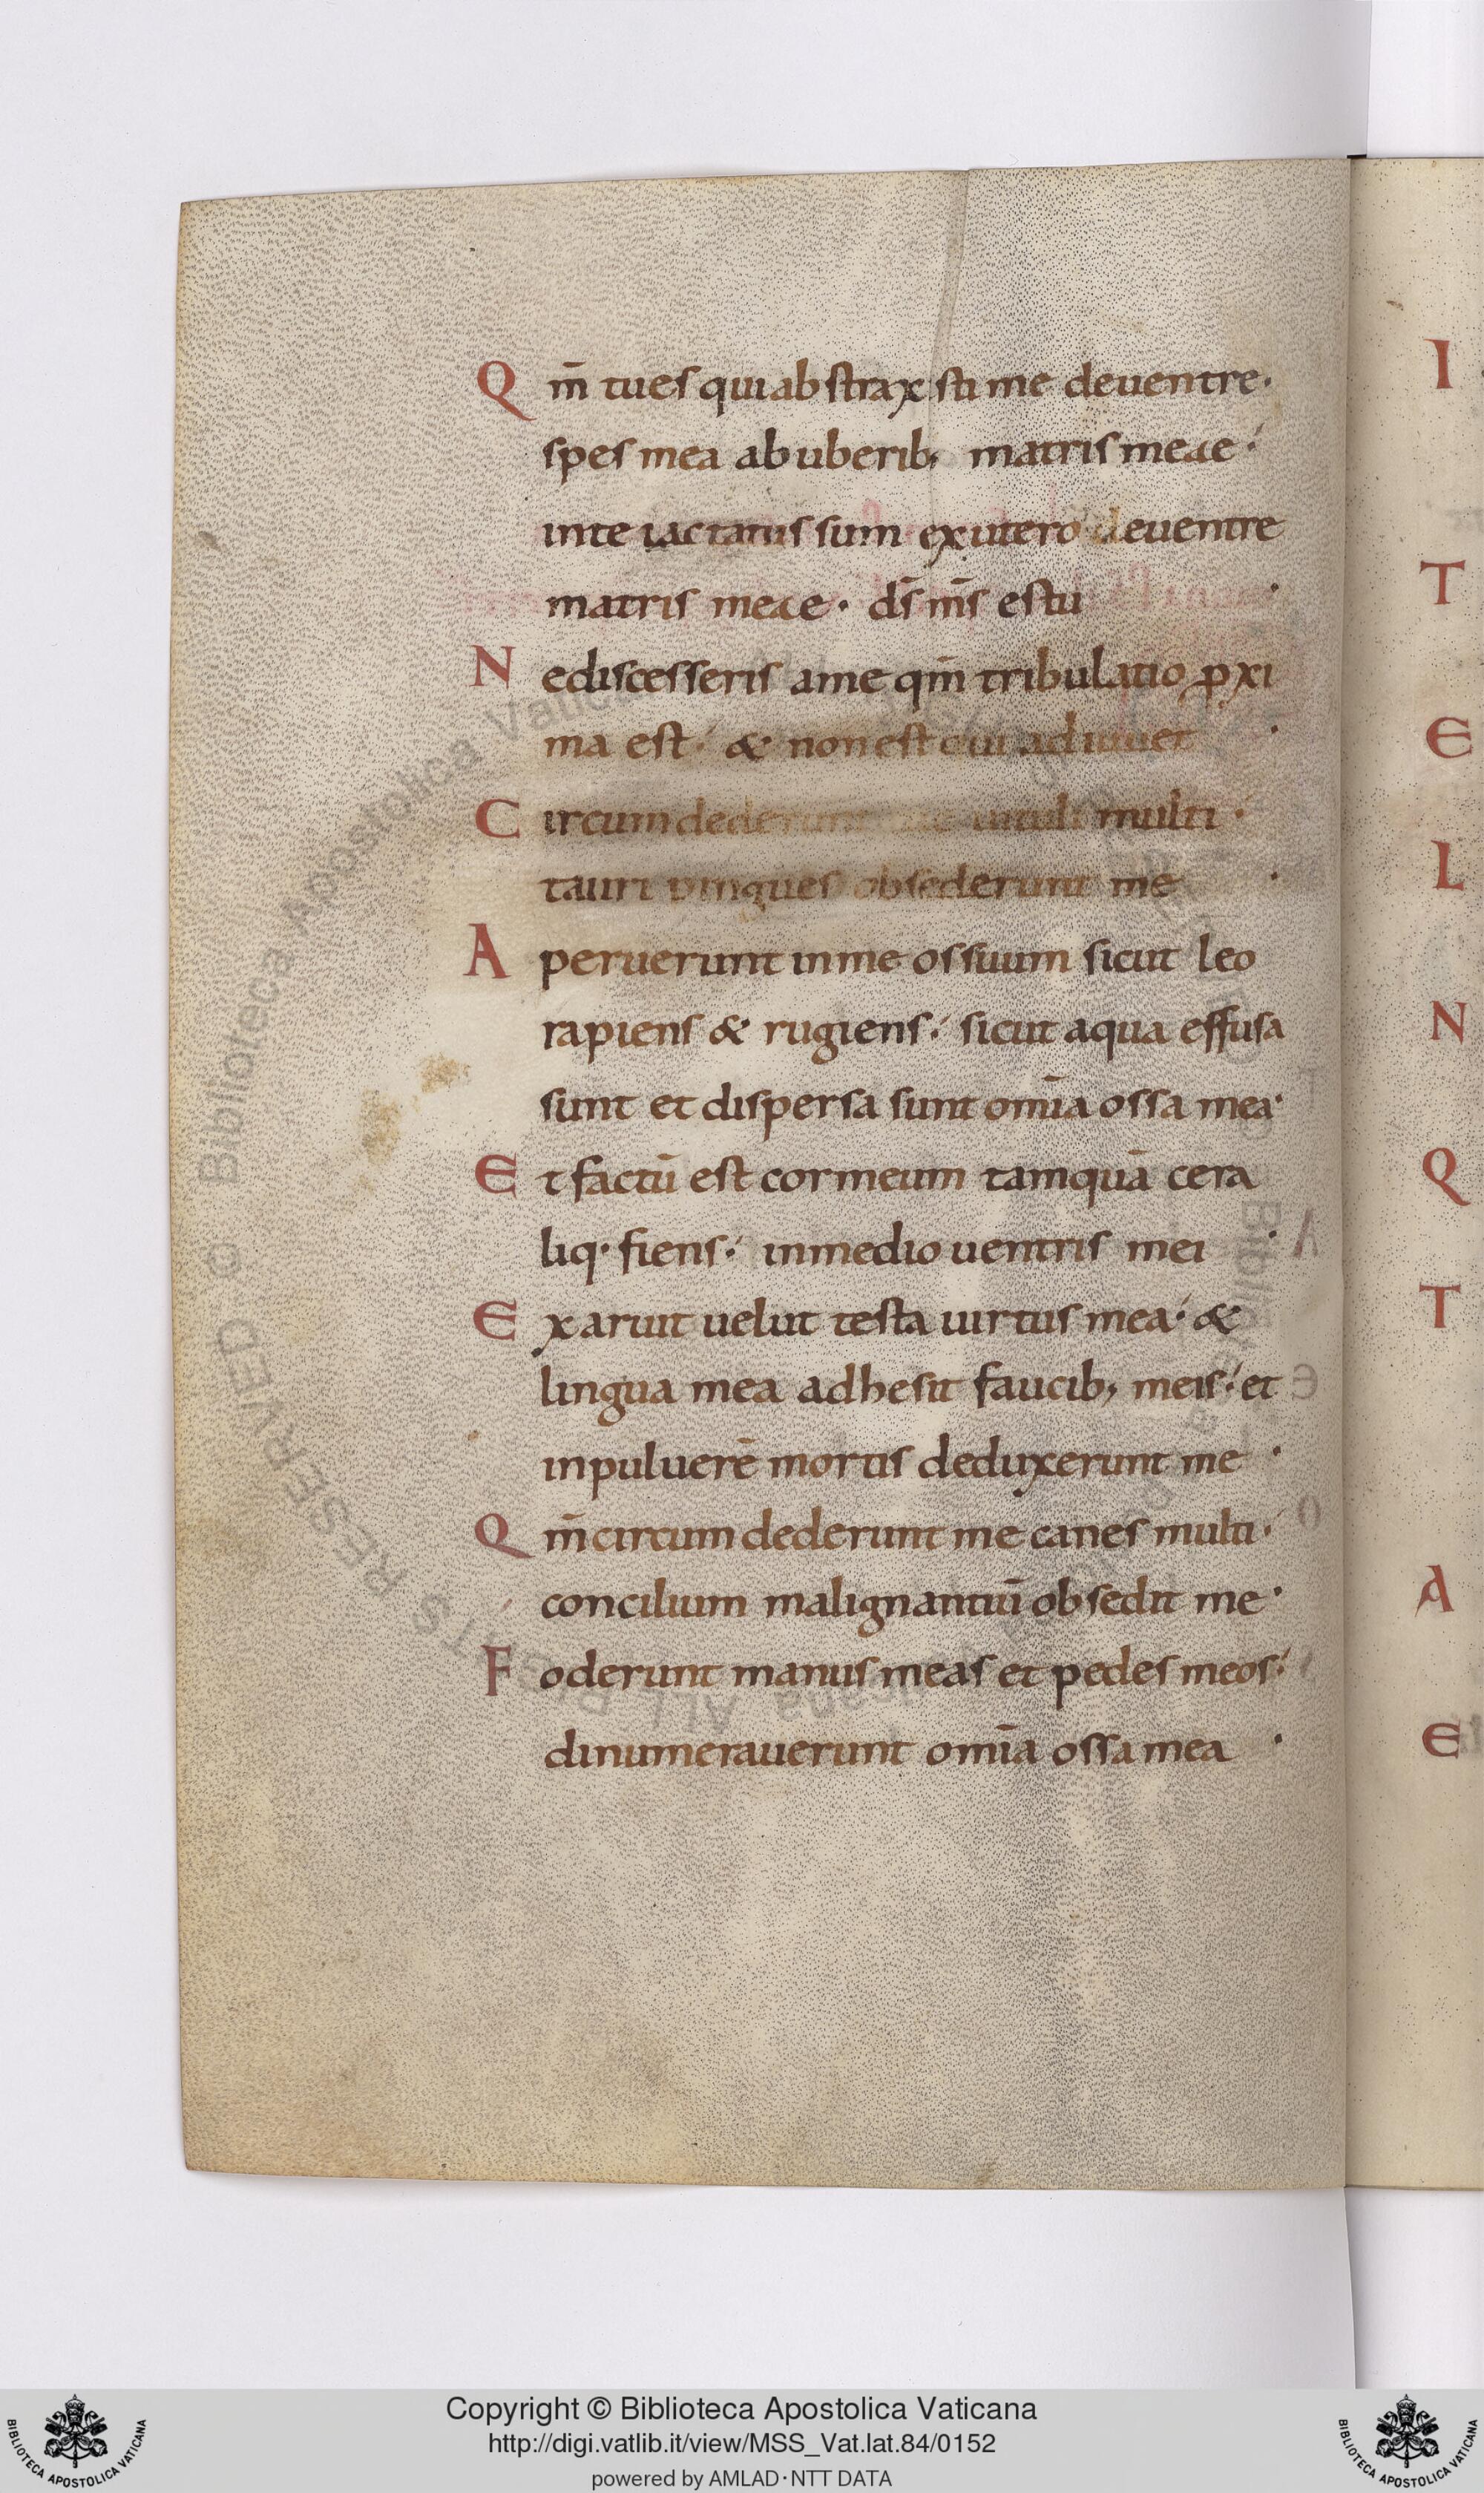 Q m̄ tu es qui abstraxsti me de uentre·
spes mea ab uberib; matris meae·
in te iactatus sum ex utero deuentre
matris meae· ds̄ ms̄ es tu ·
N e discesseris a me qm̄ tribulatio ꝓxi
ma est· & non est qui adiuuet ·
C ircumdederunt me uituli multi·
tauri pingues obsederunt me ·
A peruerunt in me os suum sicut leo
rapiens & rugiens· sicut aqua effusa
sunt et dispersa sunt om̄ia ossa mea·
E t factū est cor meum tamquā cera
liq· fiens· in medio uentris mei ·
E xaruit uelut testa uirtus mea· &
lingua mea adhesit faucib; meis· et
in puluerē mortis deduxerunt me ·
Q m̄ circumdederunt me canes multi·
concilium malignantiū obsedit me·
F oderunt manus meas et pedes meos·
dinumerauerunt om̄ia ossa mea ·
I
T
E
L
N
Q
T
A
E
Copyright © Biblioteca Apostolica Vaticana
http://digi.vatlib.it/view/MSS_Vat.lat.84/0152
powered by AMLAD·NTT DATA
BIBLIOTECA APOSTOLICA VATICANA
BIBLIOTECA APOSTOLICA VATICANA